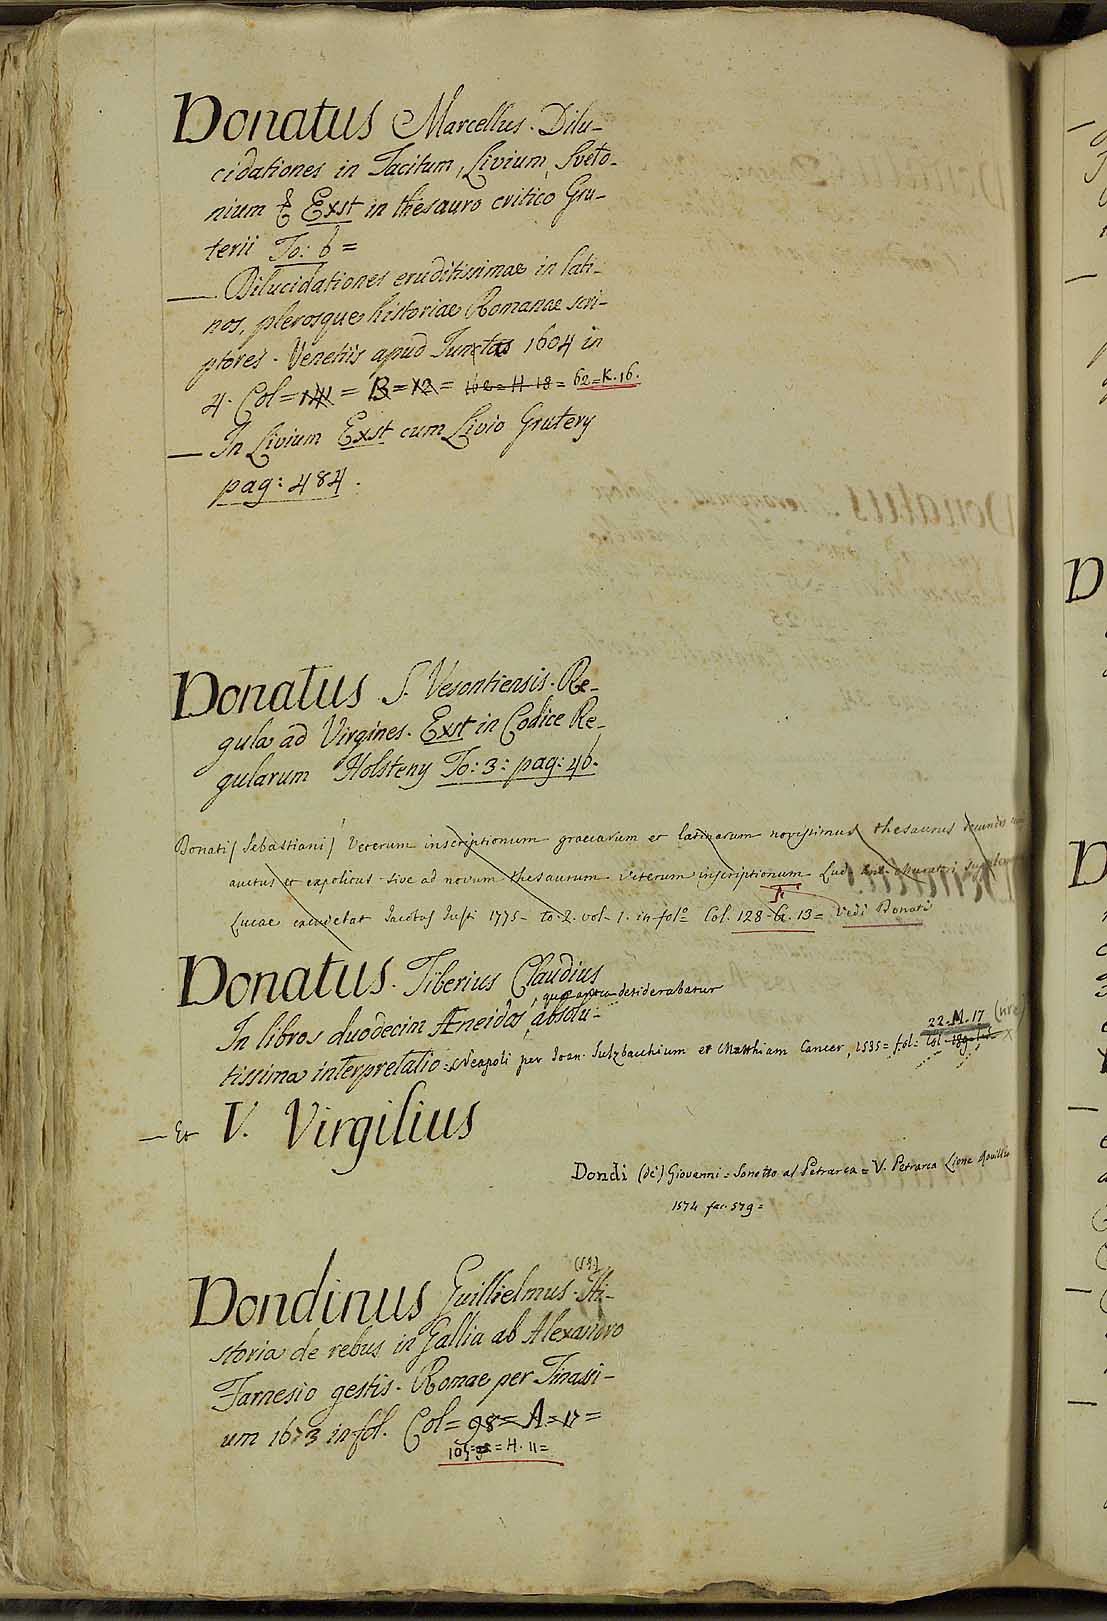 Donatus Marcellus. Dilu-
cidationes in Tacitum, Livium, Sveto-
nium & Exst in thesauro critico Gru-
terii To: 6=
— Dilucidationes eruditissimae in lati-
nos, plerosque historiae Romanae scri-
ptores. Venetiis apud Junctas 1604 in
4. Col= = B=12= 162=H.18= 62=K.16.
— In Livium Exst cum Livio Grutery
pag: 484.
Donatus S. Vesontiensis. Re-
gula ad Virgines. Exst in Codice Re-
gularum Holsteny To: 3: pag: 46.
Donati (Sebastiani) Veterum inscriptionum graecarum et latinarum novissimus thesaurus secundis
auctus et expolitus sive ad novum thesaurum veterum inscriptionum Lud. Ant. Muratori
Lucae excudebat Jacobus Justi 1775- to. 2. vol. 1. in folº Col. 128-G. 13= Vedi Donati
Donatus. Tiberius Claudius
quae antea desiderabatur
In libros duodecim Æneidos, absolu-
22.M.17
tissima interpretatio = Neapoli per Joan. Sulzbacchium et Matthiam Cancer, 1535= fol= Col
— Et V. Virgilius
Dondi (de') Giovanni = Sonetto al Petrarca = V. Petrarca Lione Rouillio
1574 fac. 579=
(S.J.)
Dondinus Guillielmus. Hi-
storia de rebus in Gallia ab Alexandro
Farnesio gestis. Romae per Tinassi-
um 1673 in fol. Col= 98= A=17=
105= =H.11=